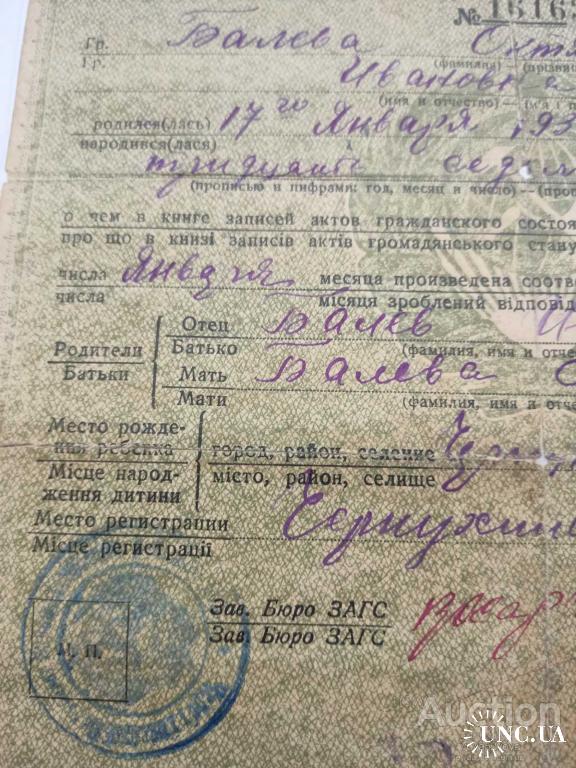 № 16163
Гр. Балева Окт
Гр. (фамилия)—(прізви
Ивановна
(имя и отчество)—(м'я і п
родился(лась) 17го Января 193
народився(лася)
тридцать седьм
(прописью и цифрами: год, месяц и число)—(проп
о чем в книге записей актов гражданского состоя
про що в книзі записів актів громадянського стану
числа Января месяца произведена соотве
числа місяця зроблений відповід
Отец Балев
Родители Батько (фамилия, имя и отче
Батьки Мать Балева
Мати (фамилия, имя и отче
Место рожде-
ния ребенка город, район, селение
Місце народ- місто, район, селище
ження дитини
Место регистрации Чернухин
Місце регистрації
Зав. Бюро ЗАГС
Зав. Бюро ЗАГС
М. П.
Auction
UNC.UA